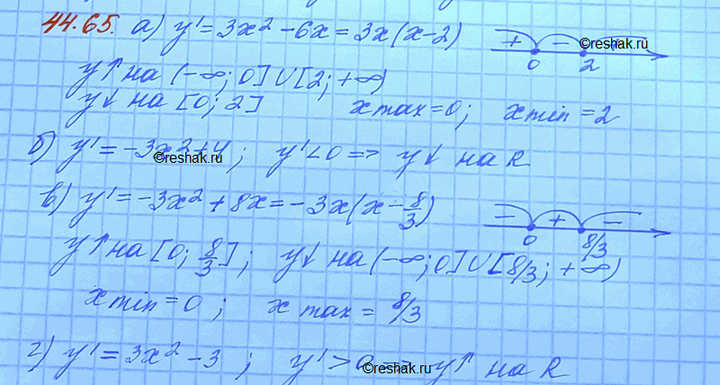 44.65. а) y' = 3x² - 6x = 3x(x-2) + - 0 2 reshak.ru
y↑ на (-∞; 0] ∪ [2; +∞)
y↓ на [0; 2] x max = 0; x min = 2
б) y' = -3x² + 4; y' < 0 => y↓ на R
reshak.ru
в) y' = -3x² + 8x = -3x(x - 8/3) - + - 0 8/3
y↑ на [0; 8/3]; y↓ на (-∞; 0] ∪ [8/3; +∞)
x min = 0; x max = 8/3
г) y' = 3x² - 3; y' > 0 => y↑ на R